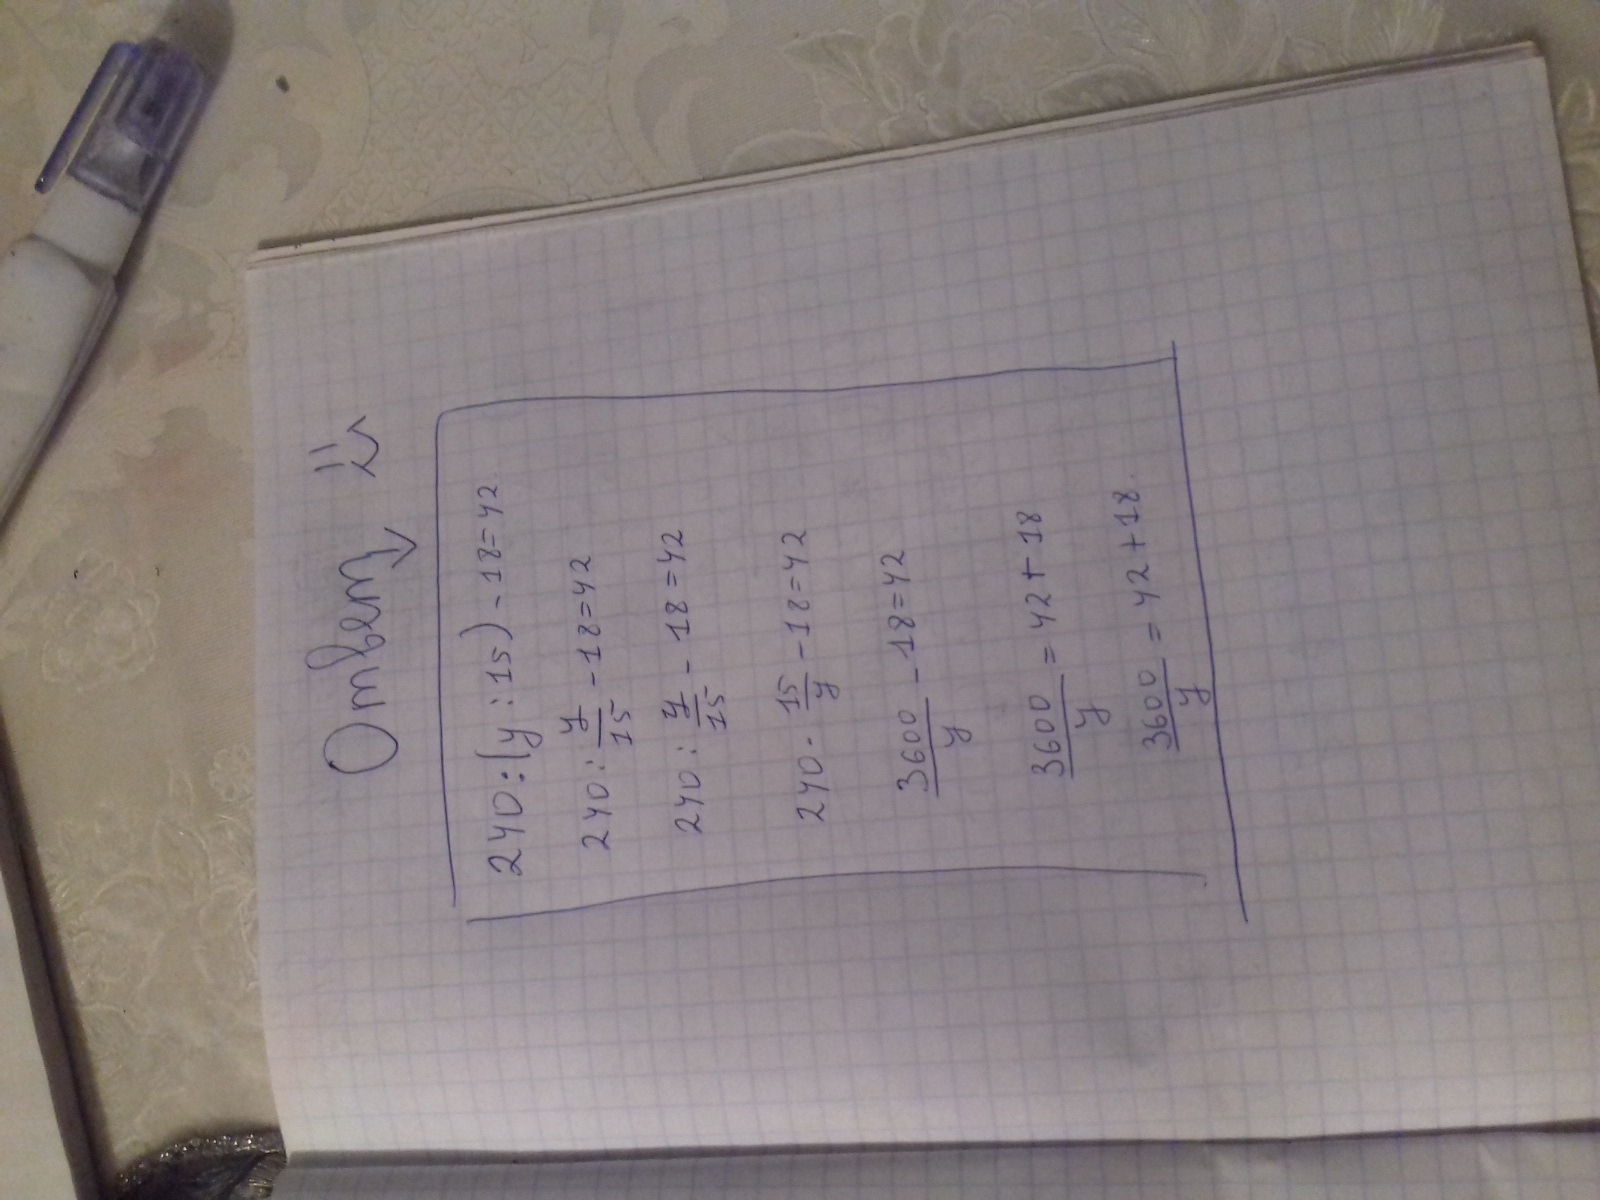 Ответ
240:(y:15)-18=42
240:y/15-18=42
240:y/15-18=42
240·15/y-18=42
3600/y-18=42
3600/y=42+18
3600/y=42+18.